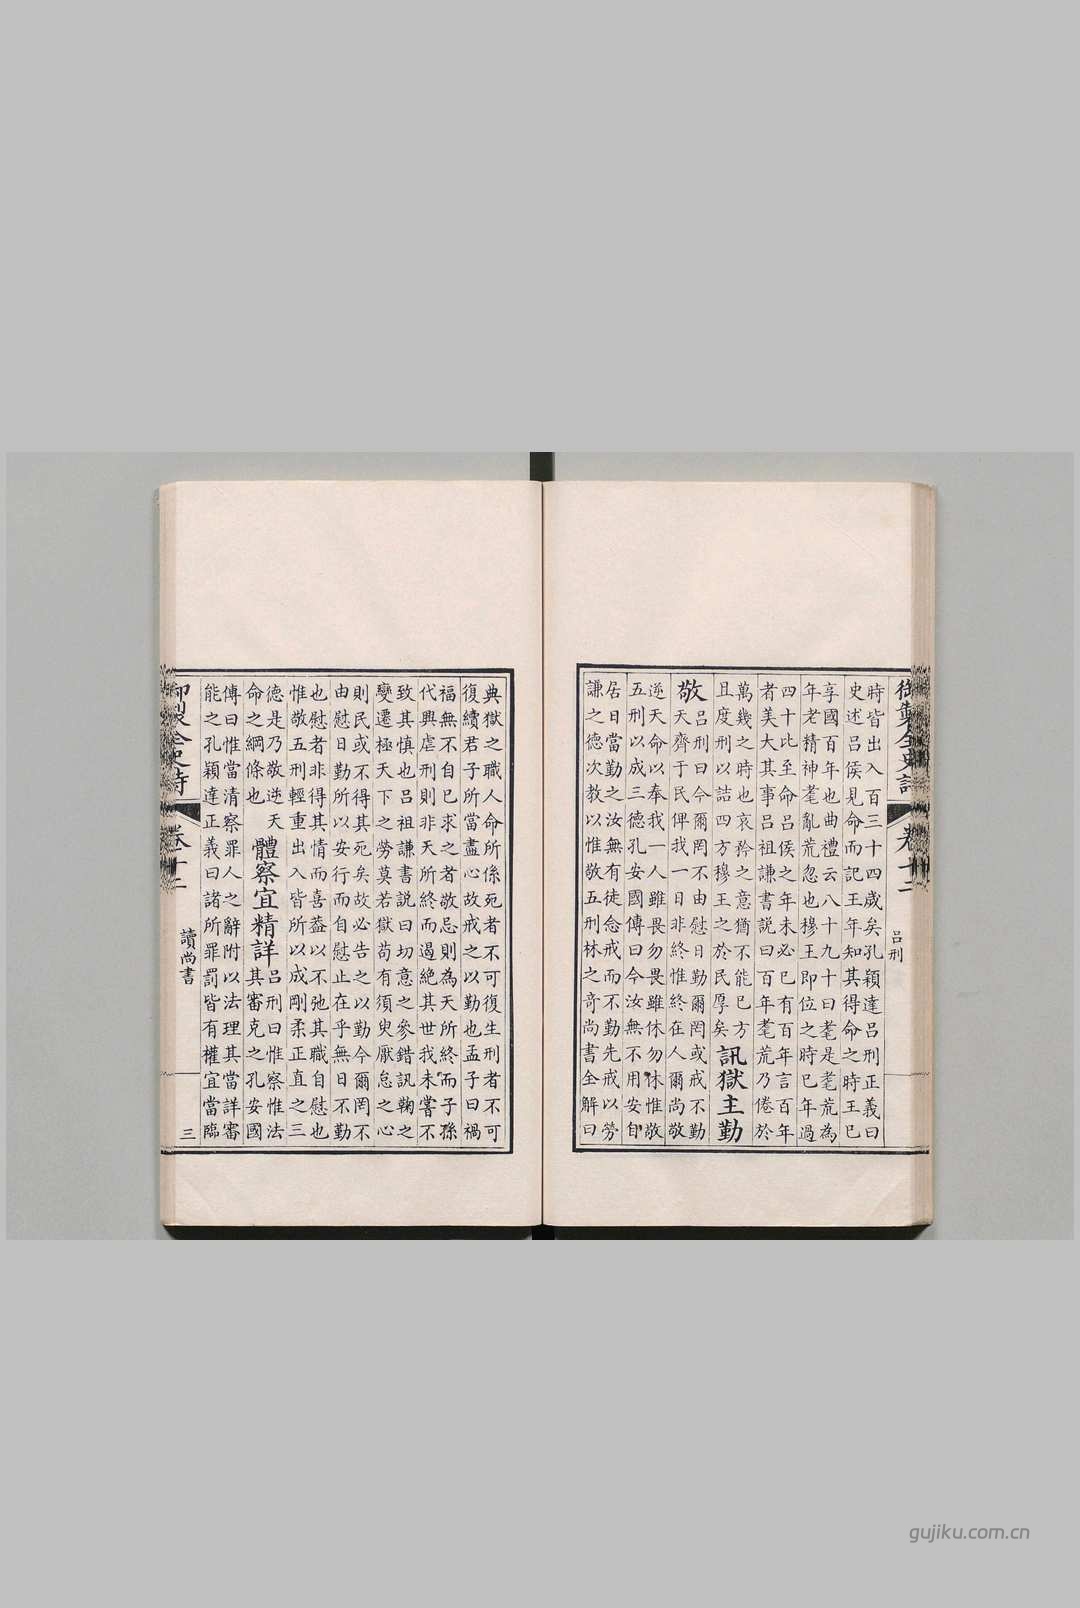 御製全史詩 卷十二
呂刑
時皆出入百三十四歲矣孔穎達呂刑正義曰
史述呂侯見命而記王年知其得命之時王已
享國百年也曲禮云八十九十曰耄是耄荒為
年老精神耄亂荒忽也穆王即位之時已年過
四十比至命呂侯之年未必已有百年言百年
者美大其事呂祖謙書說曰百年耄荒乃倦於
萬幾之時也哀矜之意猶不能已方
且度刑以詰四方穆王之於民厚矣
訊獄主勤
敬
呂刑曰今爾罔不由慰日勤爾罔或戒不勤
天齊于民俾我一日非終惟終在人爾尚敬
逆天命以奉我一人雖畏勿畏雖休勿休惟敬
五刑以成三德孔安國傳曰今汝無不用安自
居日當勤之汝無有徒念戒而不勤先戒以勞
謙之德次教以惟敬五刑林之奇尚書全解曰
典獄之職人命所係死者不可復生刑者不可
復續君子所當盡心故戒之以勤也孟子曰禍
福無不自已求之者敬忌則為天所終而子孫
代興虐刑則非天所終而遏絕其世我未嘗不
致其慎也呂祖謙書說曰切意之參錯訊鞠之
變遷極天下之勞莫若獄苟有須臾厭怠之心
則民或不得其死矣故必告之以勤今爾罔不
由慰日勤所以安行而自慰止在乎無日不勤
也慰者非得其情而喜葢以不弛其職自慰也
惟敬五刑輕重出入皆所以成剛柔正直之三
德是乃敬逆天
命之綱條也
體察宜精詳
呂刑曰惟察惟法
其審克之孔安國
傳曰惟當清察罪人之辭附以法理其當詳審
能之孔穎達正義曰諸所罪罰皆有權宜當臨
御製全史詩 卷十二
讀尚書
三
gujiku.com.cn